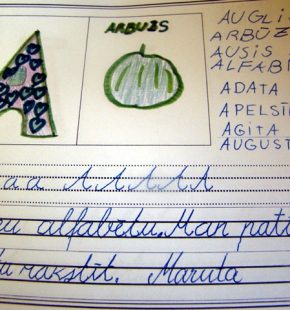 A
ARBUZS
AUGLI
ARBŪZ
AUSIS
ALFAB
ADATA
APELSĪ
AGITA
AUGUST
a a A A A A A
alfabētu. Man pati
rakstīt. Maruta